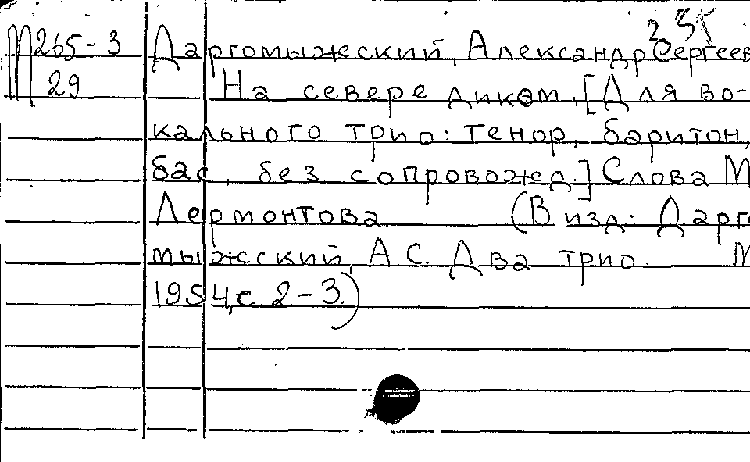 235
М265-3 Даргомыжский, Александр Сергеев
29 На севере диком. [Для во-
кального трио: тенор, баритон,
бас, без сопровожд.] Слова М
Лермонтова (В изд: Дарго
мыжский, А С. Два трио. М
1954, с. 2-3.)